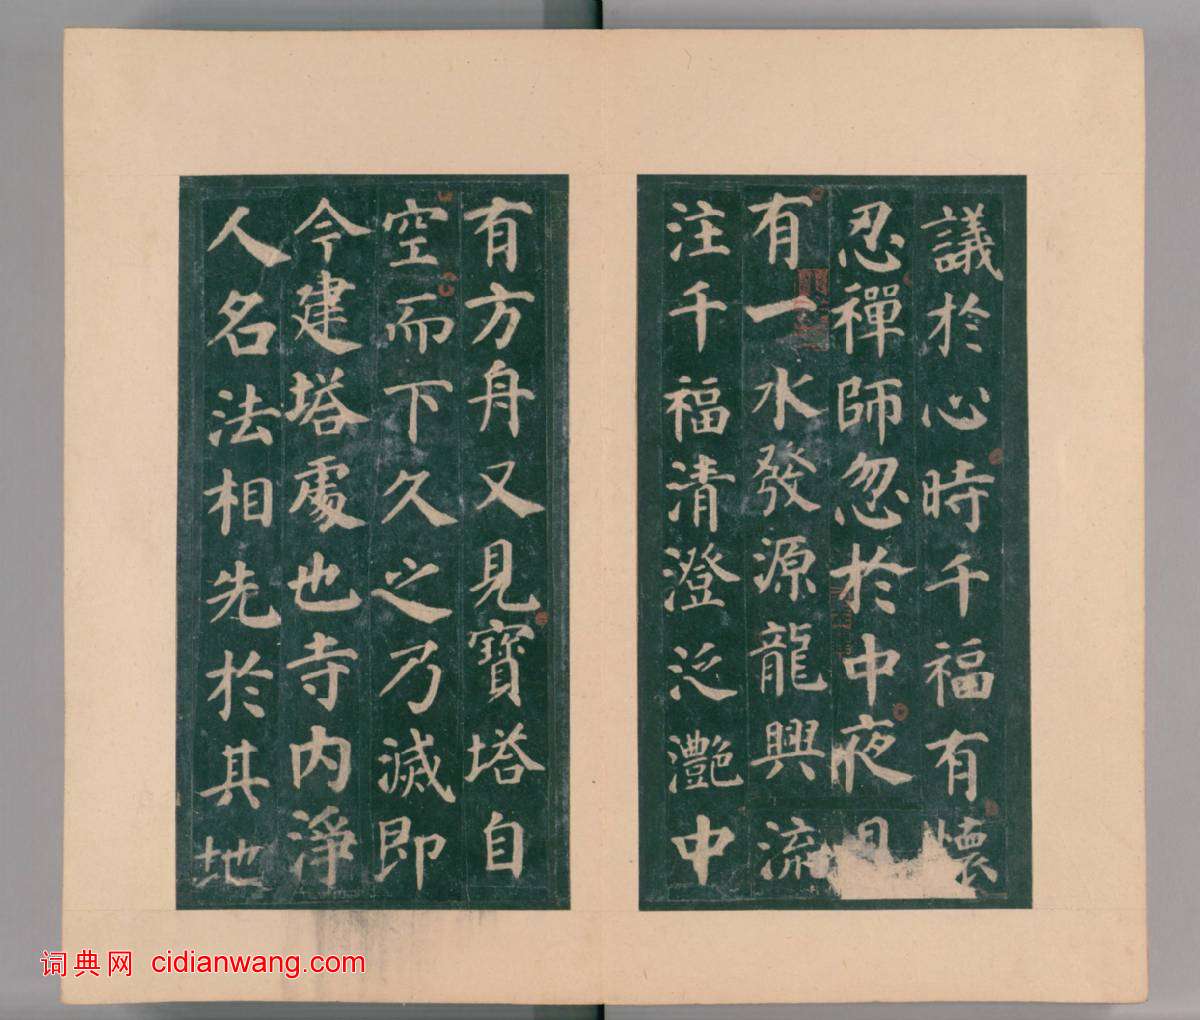 議於心時千福有懷
忍禪師忽於中夜見
有一水發源龍興流
注千福清澄泛灩中
有方舟又見寶塔自
空而下久之乃滅即
今建塔處也寺内淨
人名法相先於其地
词典网 cidianwang.com